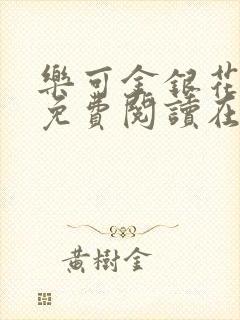 樂可金銀花
免費閱讀在
黃樹金